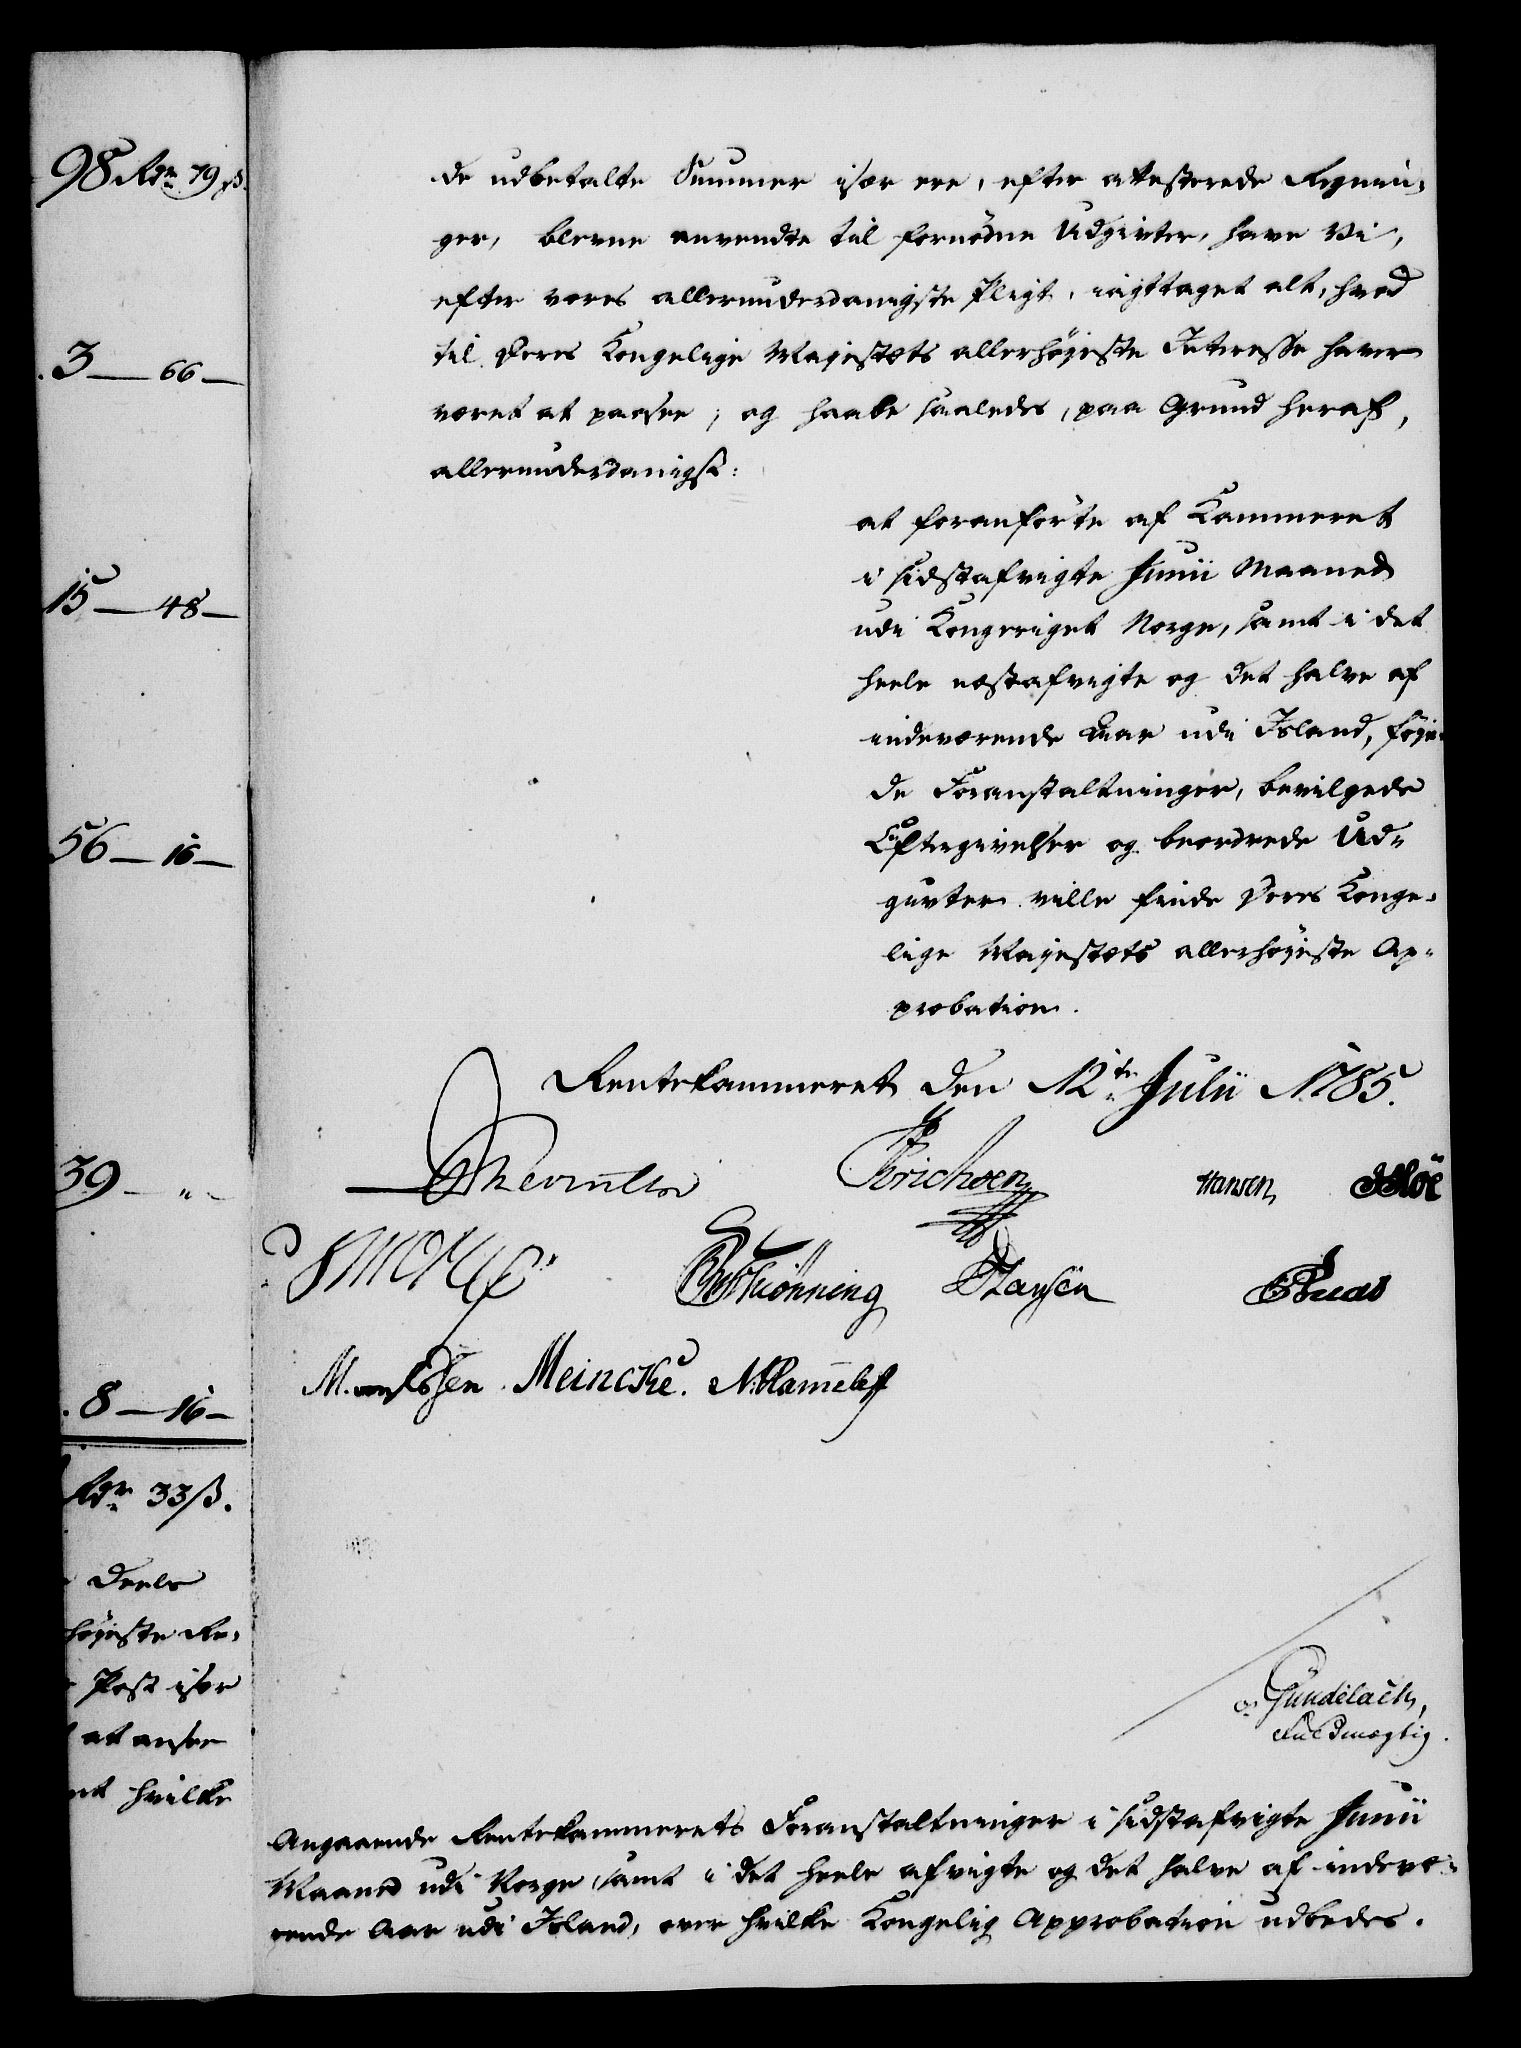 98 Rdr 79 ß.
3 — 66 —
15 — 48 —
56 — 16 —
39 — " —
8 — 16 —
Rdr 33 ß.
Deels
højeste Re-
Post især
at ansee
hvilke
de udbetalte Summer især ere, efter attesterede Regnin-
ger, blevne anvendte til fornødne Udgivter, have Vi,
efter vores allerunderdanigste Pligt, iagttaget alt, hvad
til Deres Kongelige Majestæts allerhøjeste Interesse haver
været at paasee; og haabe saaledes, paa Grund heraf,
allerunderdanigst:
at foranførte af Kammeret
i sidstafvigte Junii Maaned
udi Kongeriget Norge, samt i det
heele næstafvigte og det halve af
indeværende Aar udi Island, føje-
de Foranstaltninger, bevilgede
Eftergivelser og beordrede Ud-
givter ville finde Deres Konge-
lige Majestæts allerhøjeste Ap-
probation.
Rentekammeret den 12te Julii 1785.
Erichsen Hansen
Thønning Hansen
Meincke.
Gundelach,
Fuldmægtig.
Angaaende Rentekammerets Foranstaltninger i sidstafvigte Junii
Maaned udi Norge, samt i det heele afvigte og det halve af indevæ-
rende Aar udi Island, over hvilke Kongelig Approbation udbedes.